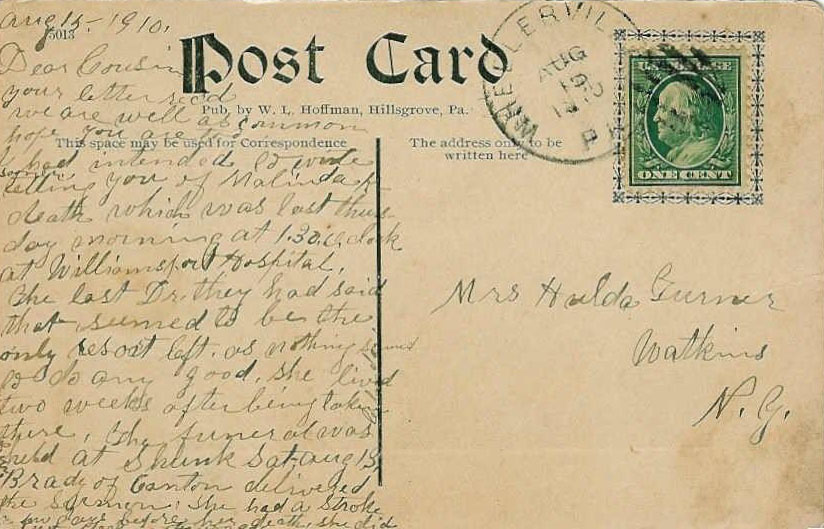 Aug 15 - 1910.
5013
Post Card
Pub. by W. L. Hoffman, Hillsgrove, Pa.
This space may be used for Correspondence
The address only to be
written here
WHEELERVIL
AUG
19
PA
U.S. POSTAGE
ONE CENT
Dear Cousin
your letter recd
we are well as common
hope you are too
I had intended to write
sooner
telling you of Malinda
death which was last thurs
day morning at 1.30 o,clock
at Williamsport Hospital.
the last Dr. they had said
that seemed to be the
only resort left. as nothing seemed
to do any good. she lived
two weeks after being taken
there, the funeral was
held at Shunk Sat. aug 13,
Brady of Canton delivered
the Sermon. she had a stroke
before her death she did
Mrs Hulda Gurner
Watkins
N. Y.